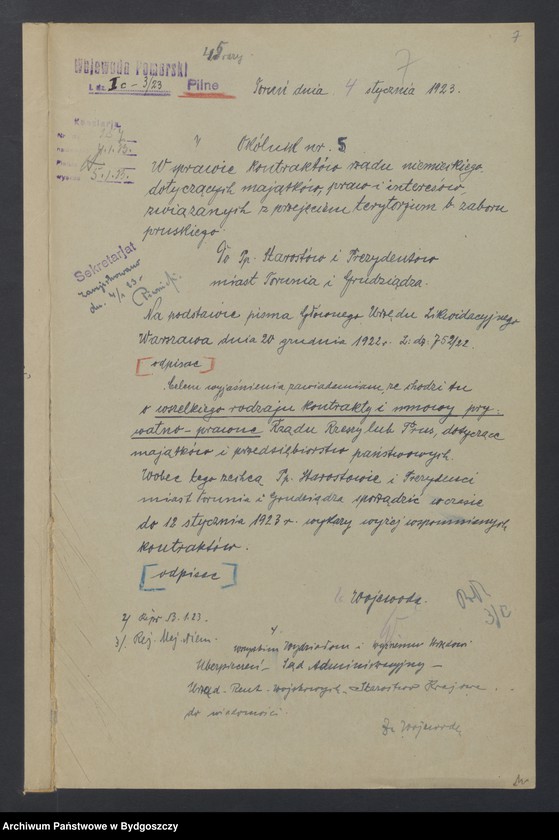 7
7
Wojewoda Pomorski
L. dz. I c - 3/23
Pilne
Toruń dnia 4 stycznia 1923.
Okólnik nr. 5
W sprawie kontraktów rządu niemieckiego
dotyczących majątków, praw i interesów
związanych z przejęciem terytorjum b. zaboru
pruskiego.
Do Pp. Starostów i Prezydentów
miast Torunia i Grudziądza.
Sekretariat
zarejestrowano
dn. 4/1 23.
Na podstawie pisma Głównego Urzędu Likwidacyjnego
Warszawa dnia 20 grudnia 1922 r. L: dz. 752/22.
[odpisać]
Celem wyjaśnienia zawiadamiam, że chodzi tu
o wszelkiego rodzaju kontrakty i umowy pry-
watno-prawne Rządu Rzeszy lub Prus, dotyczące
majątków i przedsiębiorstw państwowych.
Wobec tego zechcą Pp. Starostowie i Prezydenci
miast Torunia i Grudziądza sporządzić wcześnie
do 12 stycznia 1923 r. wykazy wyżej wspomnianych
kontraktów.
[odpisać]
Wojewoda.
2/ 13.1.23.
3/ Rej. Mej. niem.
wszystkim Wydziałom i
Ubezpieczeń - Sąd Administracyjny -
Urząd Rent Wojskowych - Starostwo Krajowe
do wiadomości.
Za Wojewodę
Archiwum Państwowe w Bydgoszczy